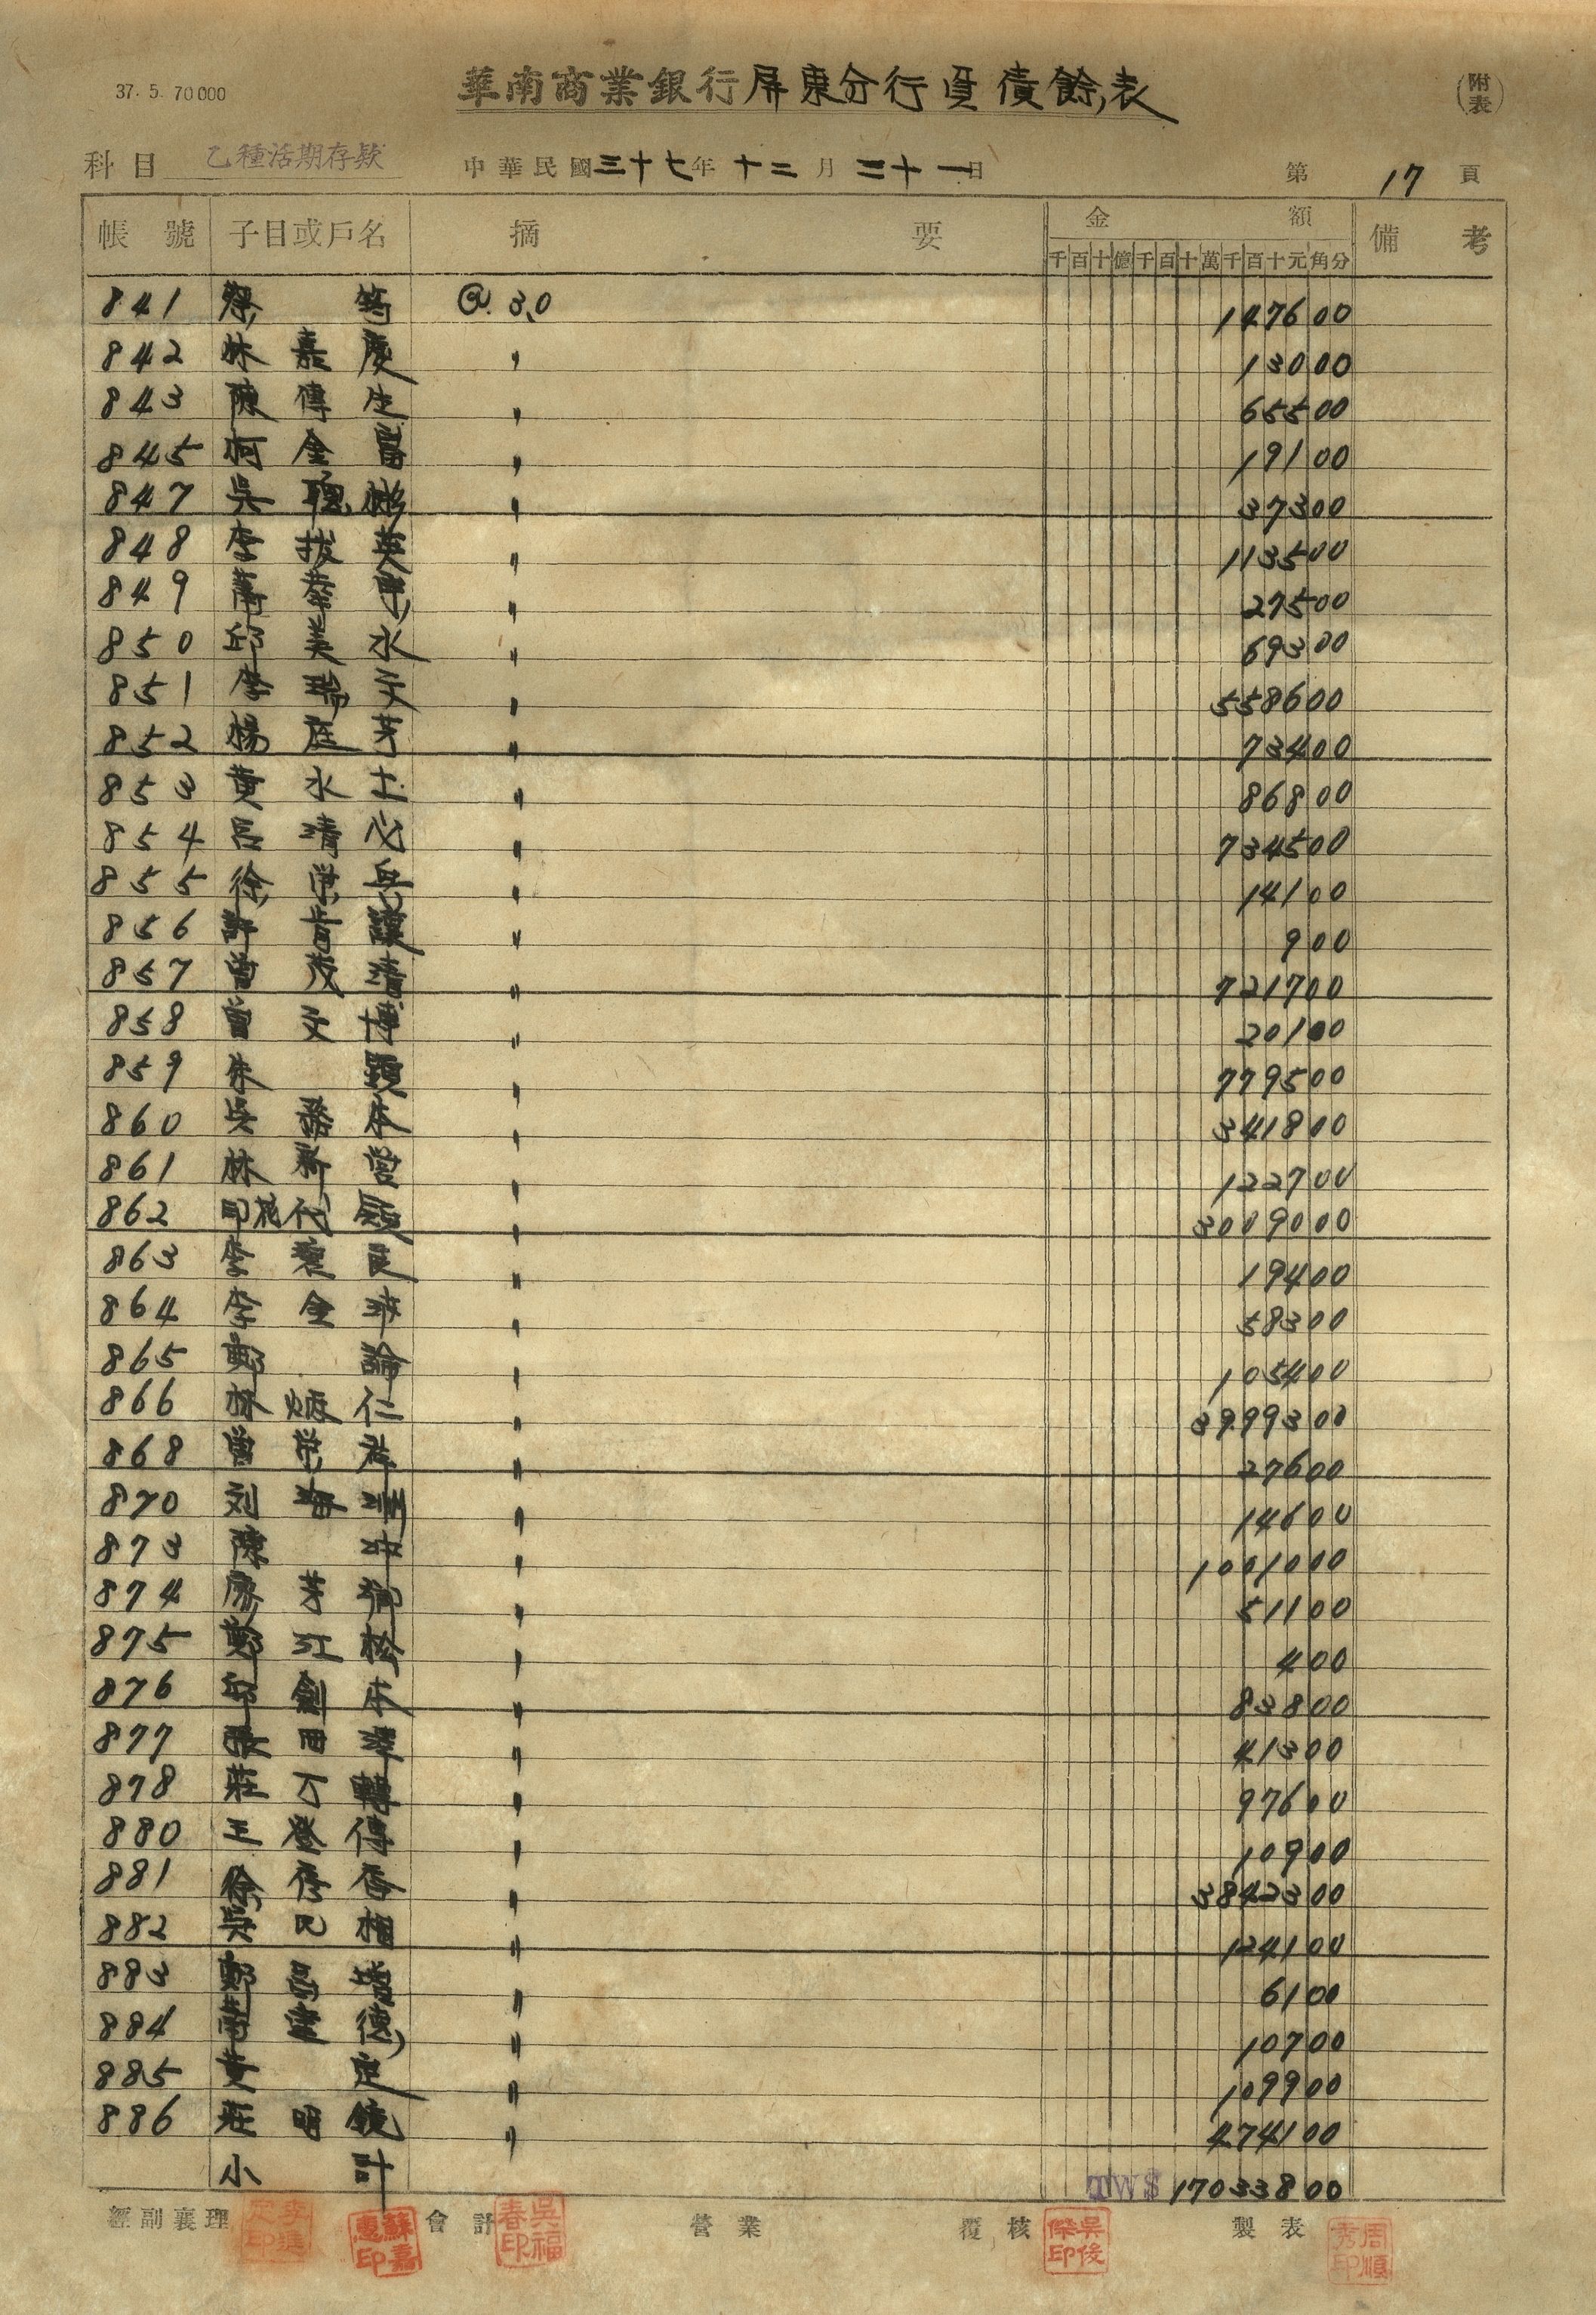 37. 5. 70000
華南商業銀行屏東分行資債餘表
(附表)
科目 乙種活期存款 中華民國三十七年十二月三十一日 第 17 頁
帳號 子目或戶名 摘要 金額 備考
千百十億千百十萬千百十元角分
841 蔡 筠 @ 3.0 147600
842 林嘉慶 〃 13000
843 陳傳生 〃 65500
845 柯金 〃 19100
847 吳聰 〃 37300
848 李拔英 〃 113500
849 〃 27500
850 邱美水 〃 69300
851 李瑞文 〃 558600
852 楊庭芳 〃 73400
853 黃水土 〃 86800
854 呂清心 〃 734500
855 徐榮兵 〃 14100
856 許肯讓 〃 900
857 曾茂清 〃 721700
858 曾文博 〃 20100
859 朱 顕 〃 779500
860 吳 本 〃 341800
861 林新営 〃 122700
862 印花代 〃 3009000
863 李 良 〃 19400
864 李金 〃 58300
865 鄭 論 〃 105400
866 林炳仁 〃 3999300
868 曾榮 〃 27600
870 刘海洲 〃 14600
873 陳 〃 1001000
874 廖芳 〃 51100
875 鄭江松 〃 400
876 邱創本 〃 83800
877 張田 〃 41300
878 莊丁轉 〃 97600
880 王登傳 〃 10900
881 徐 香 〃 3842300
882 吳民相 〃 124100
883 鄭 〃 6100
884 德 〃 10700
885 黃 定 〃 109900
886 莊明鏡 〃 474100
小計 TWS 17033800
經副襄理 會計 營業 覆核 製表
蘇嘉惠印 吳福春印 吳俊傑印 周順秀印